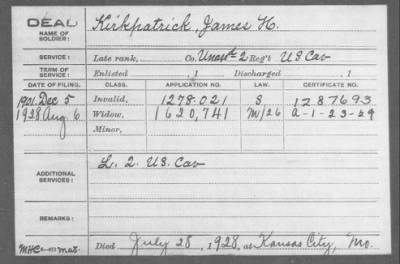 DEAL Kirkpatrick, James H.
NAME OF SOLDIER:
SERVICE: Late rank, Co. Unass'd 2 Reg't US Cav
TERM OF SERVICE: Enlisted , 1 Discharged , 1
DATE OF FILING. CLASS. APPLICATION NO. LAW. CERTIFICATE NO.
1901. Dec 5 Invalid, 1278.021 S 1287693
1928 Aug 6 Widow, 1620,741 M/26 A-1-23-29
Minor,
ADDITIONAL SERVICES: L. 2. US. Cav
REMARKS:
Died July 28, 1928, at Kansas City, Mo.